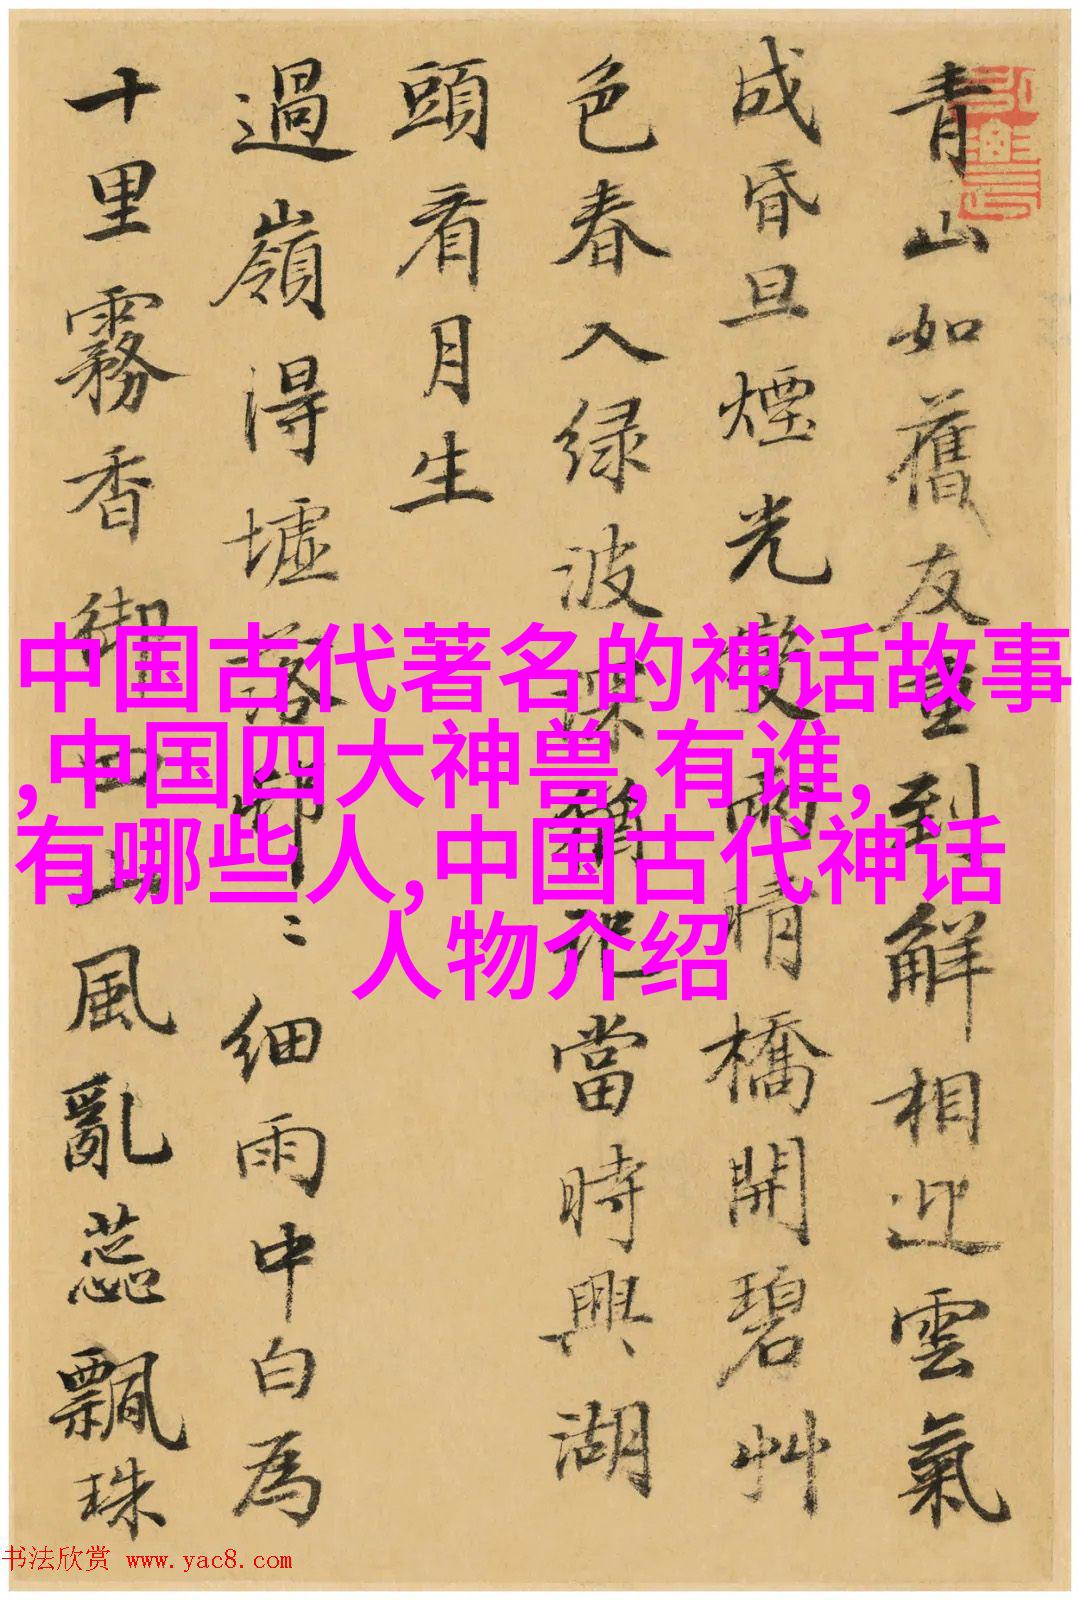 青山如舊友重到解相迎雲氣
成昏旦煙光變雨晴橋開碧艸
色春入绿波深猶記當時興湖
頭看月生
過嶺得墟落邨二二细雨中白為
十里霧香御口山風亂蕊飄珠
中国古代著名的神话故事
,中国四大神兽,有谁,
有哪些人,中国古代神话
人物介绍
书法欣赏 www.yac8.com